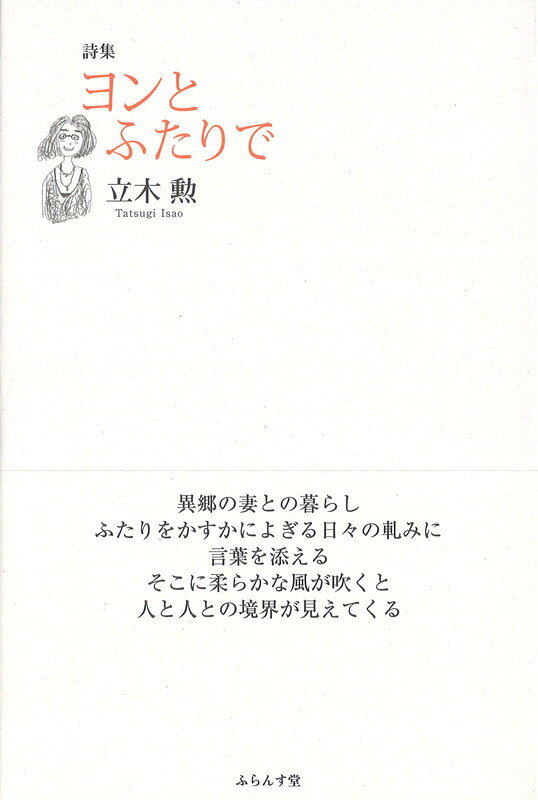 詩集
ヨンと
ふたりで
立木 勲
Tatsugi Isao
異郷の妻との暮らし
ふたりをかすかによぎる日々の軋みに
言葉を添える
そこに柔らかな風が吹くと
人と人との境界が見えてくる
ふらんす堂